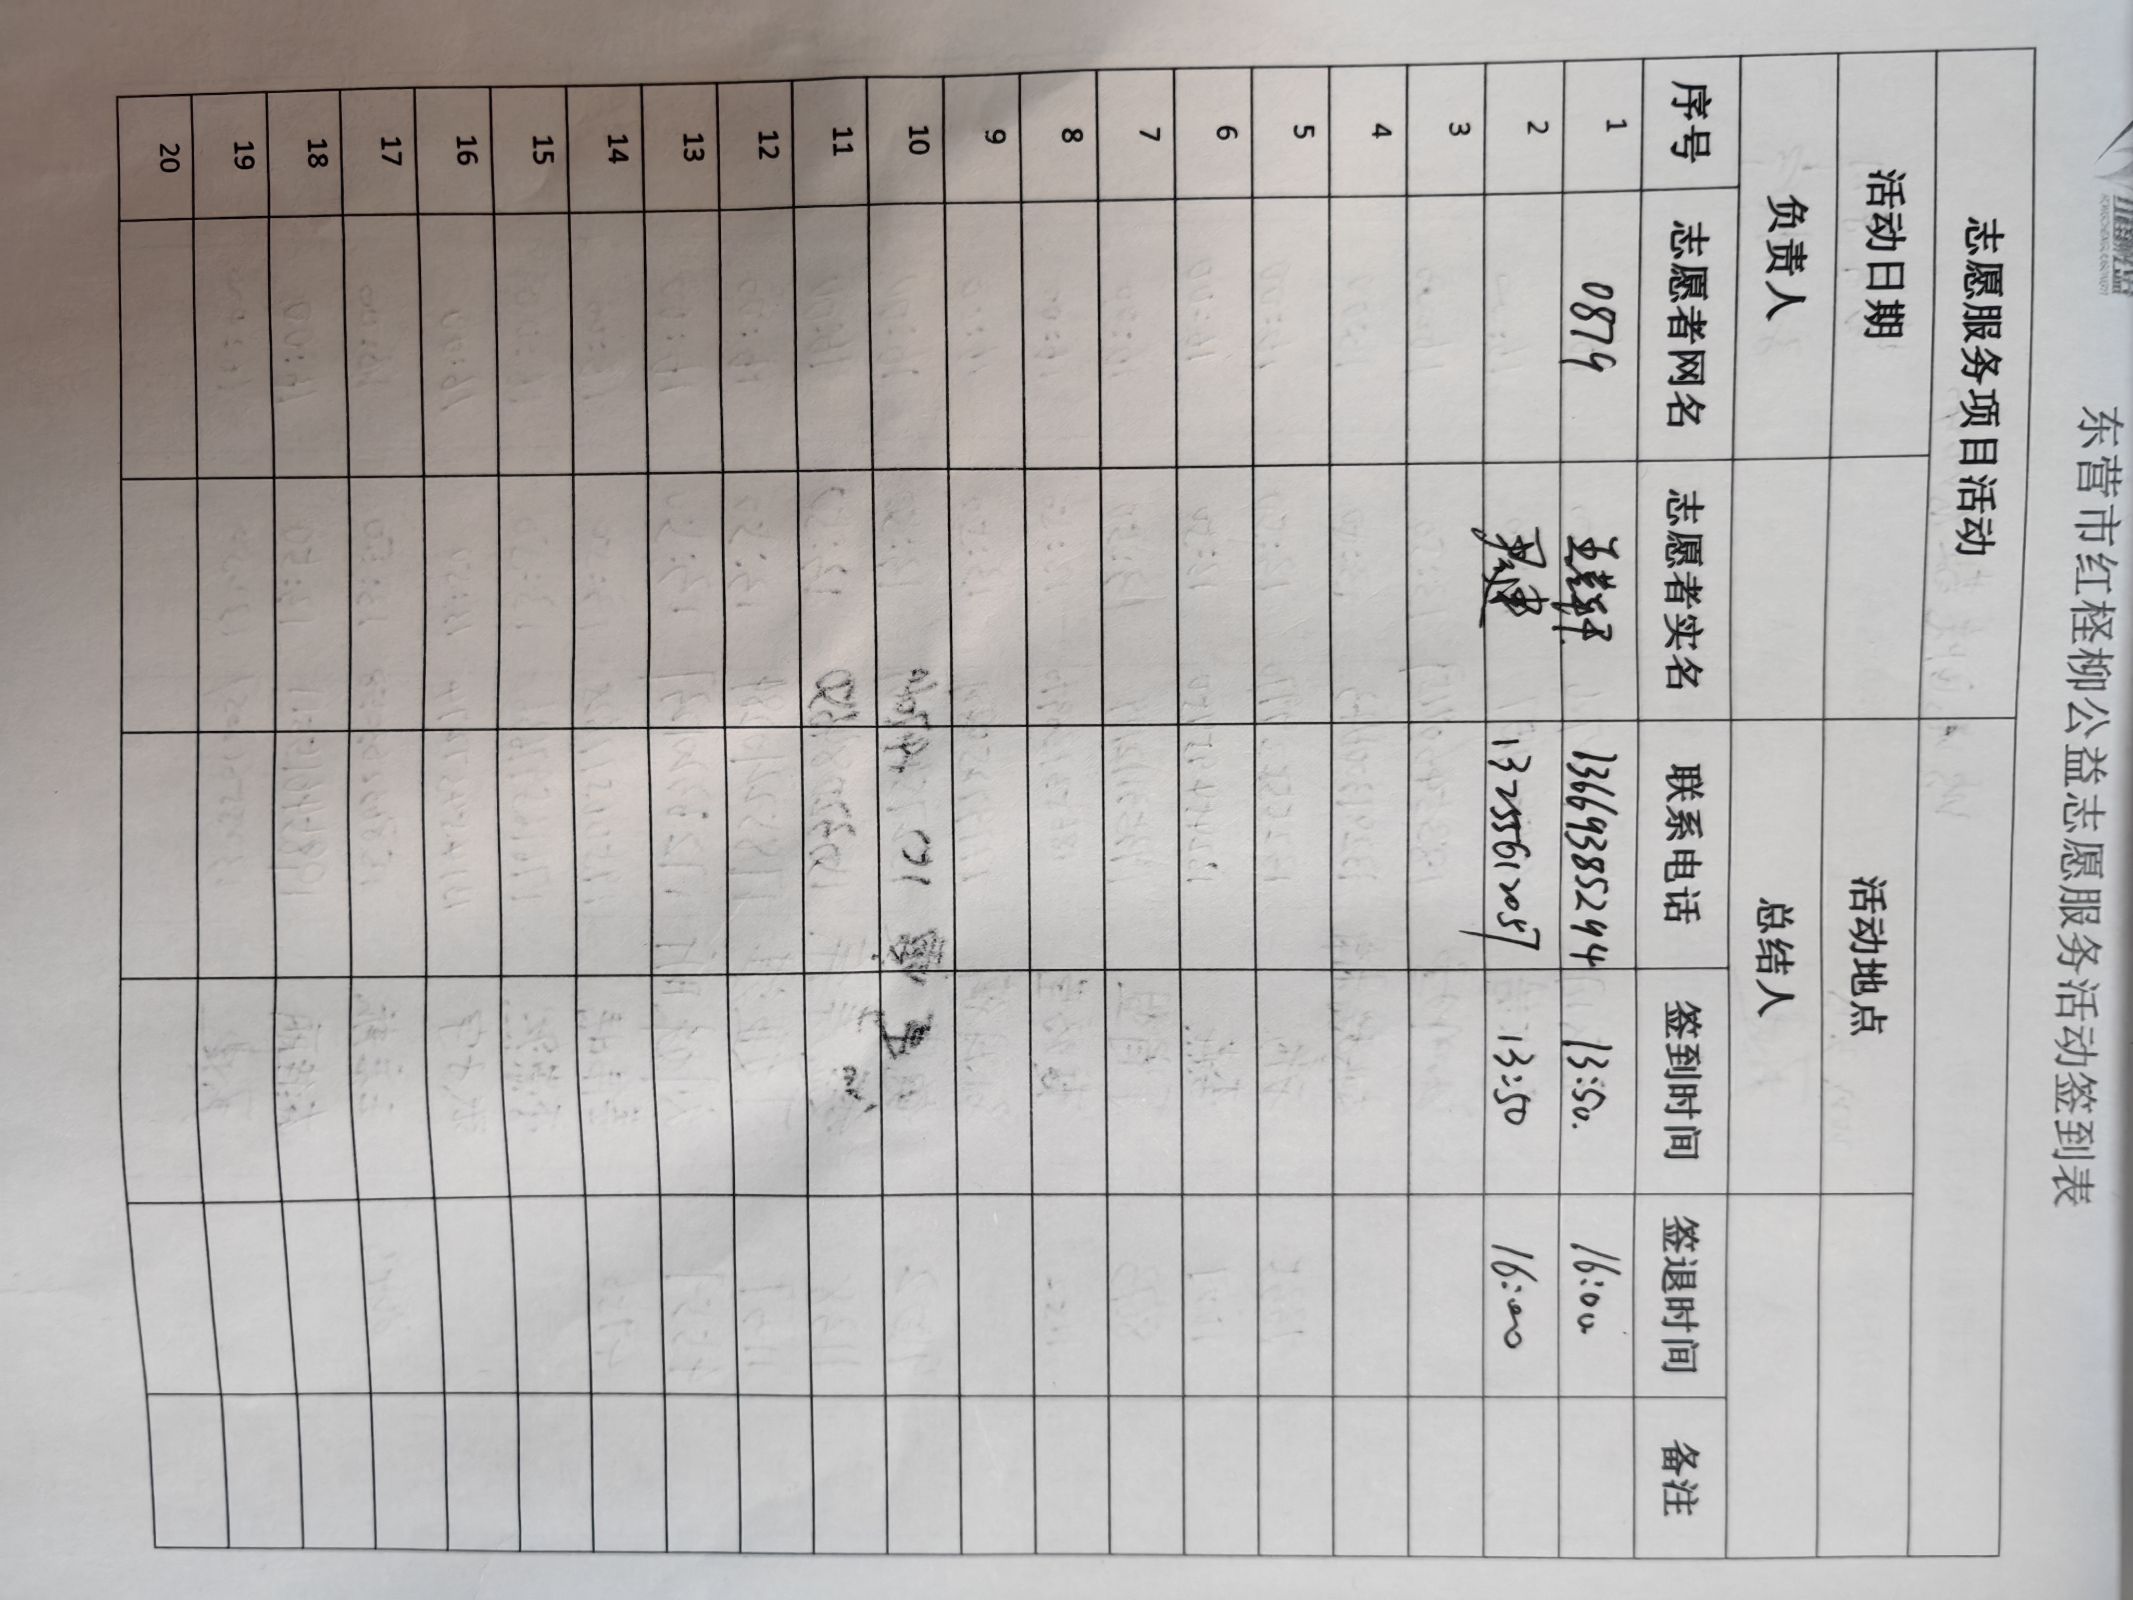 东营市红柽柳公益志愿服务活动签到表
志愿服务项目活动
活动日期 活动地点
负责人 总结人
序号 志愿者网名 志愿者实名 联系电话 签到时间 签退时间 备注
1 0879 13669385244 13:50. 16:00
2 13255612057 13:50 16:00
3
4
5
6
7
8
9
10
11
12
13
14
15
16
17
18
19
20